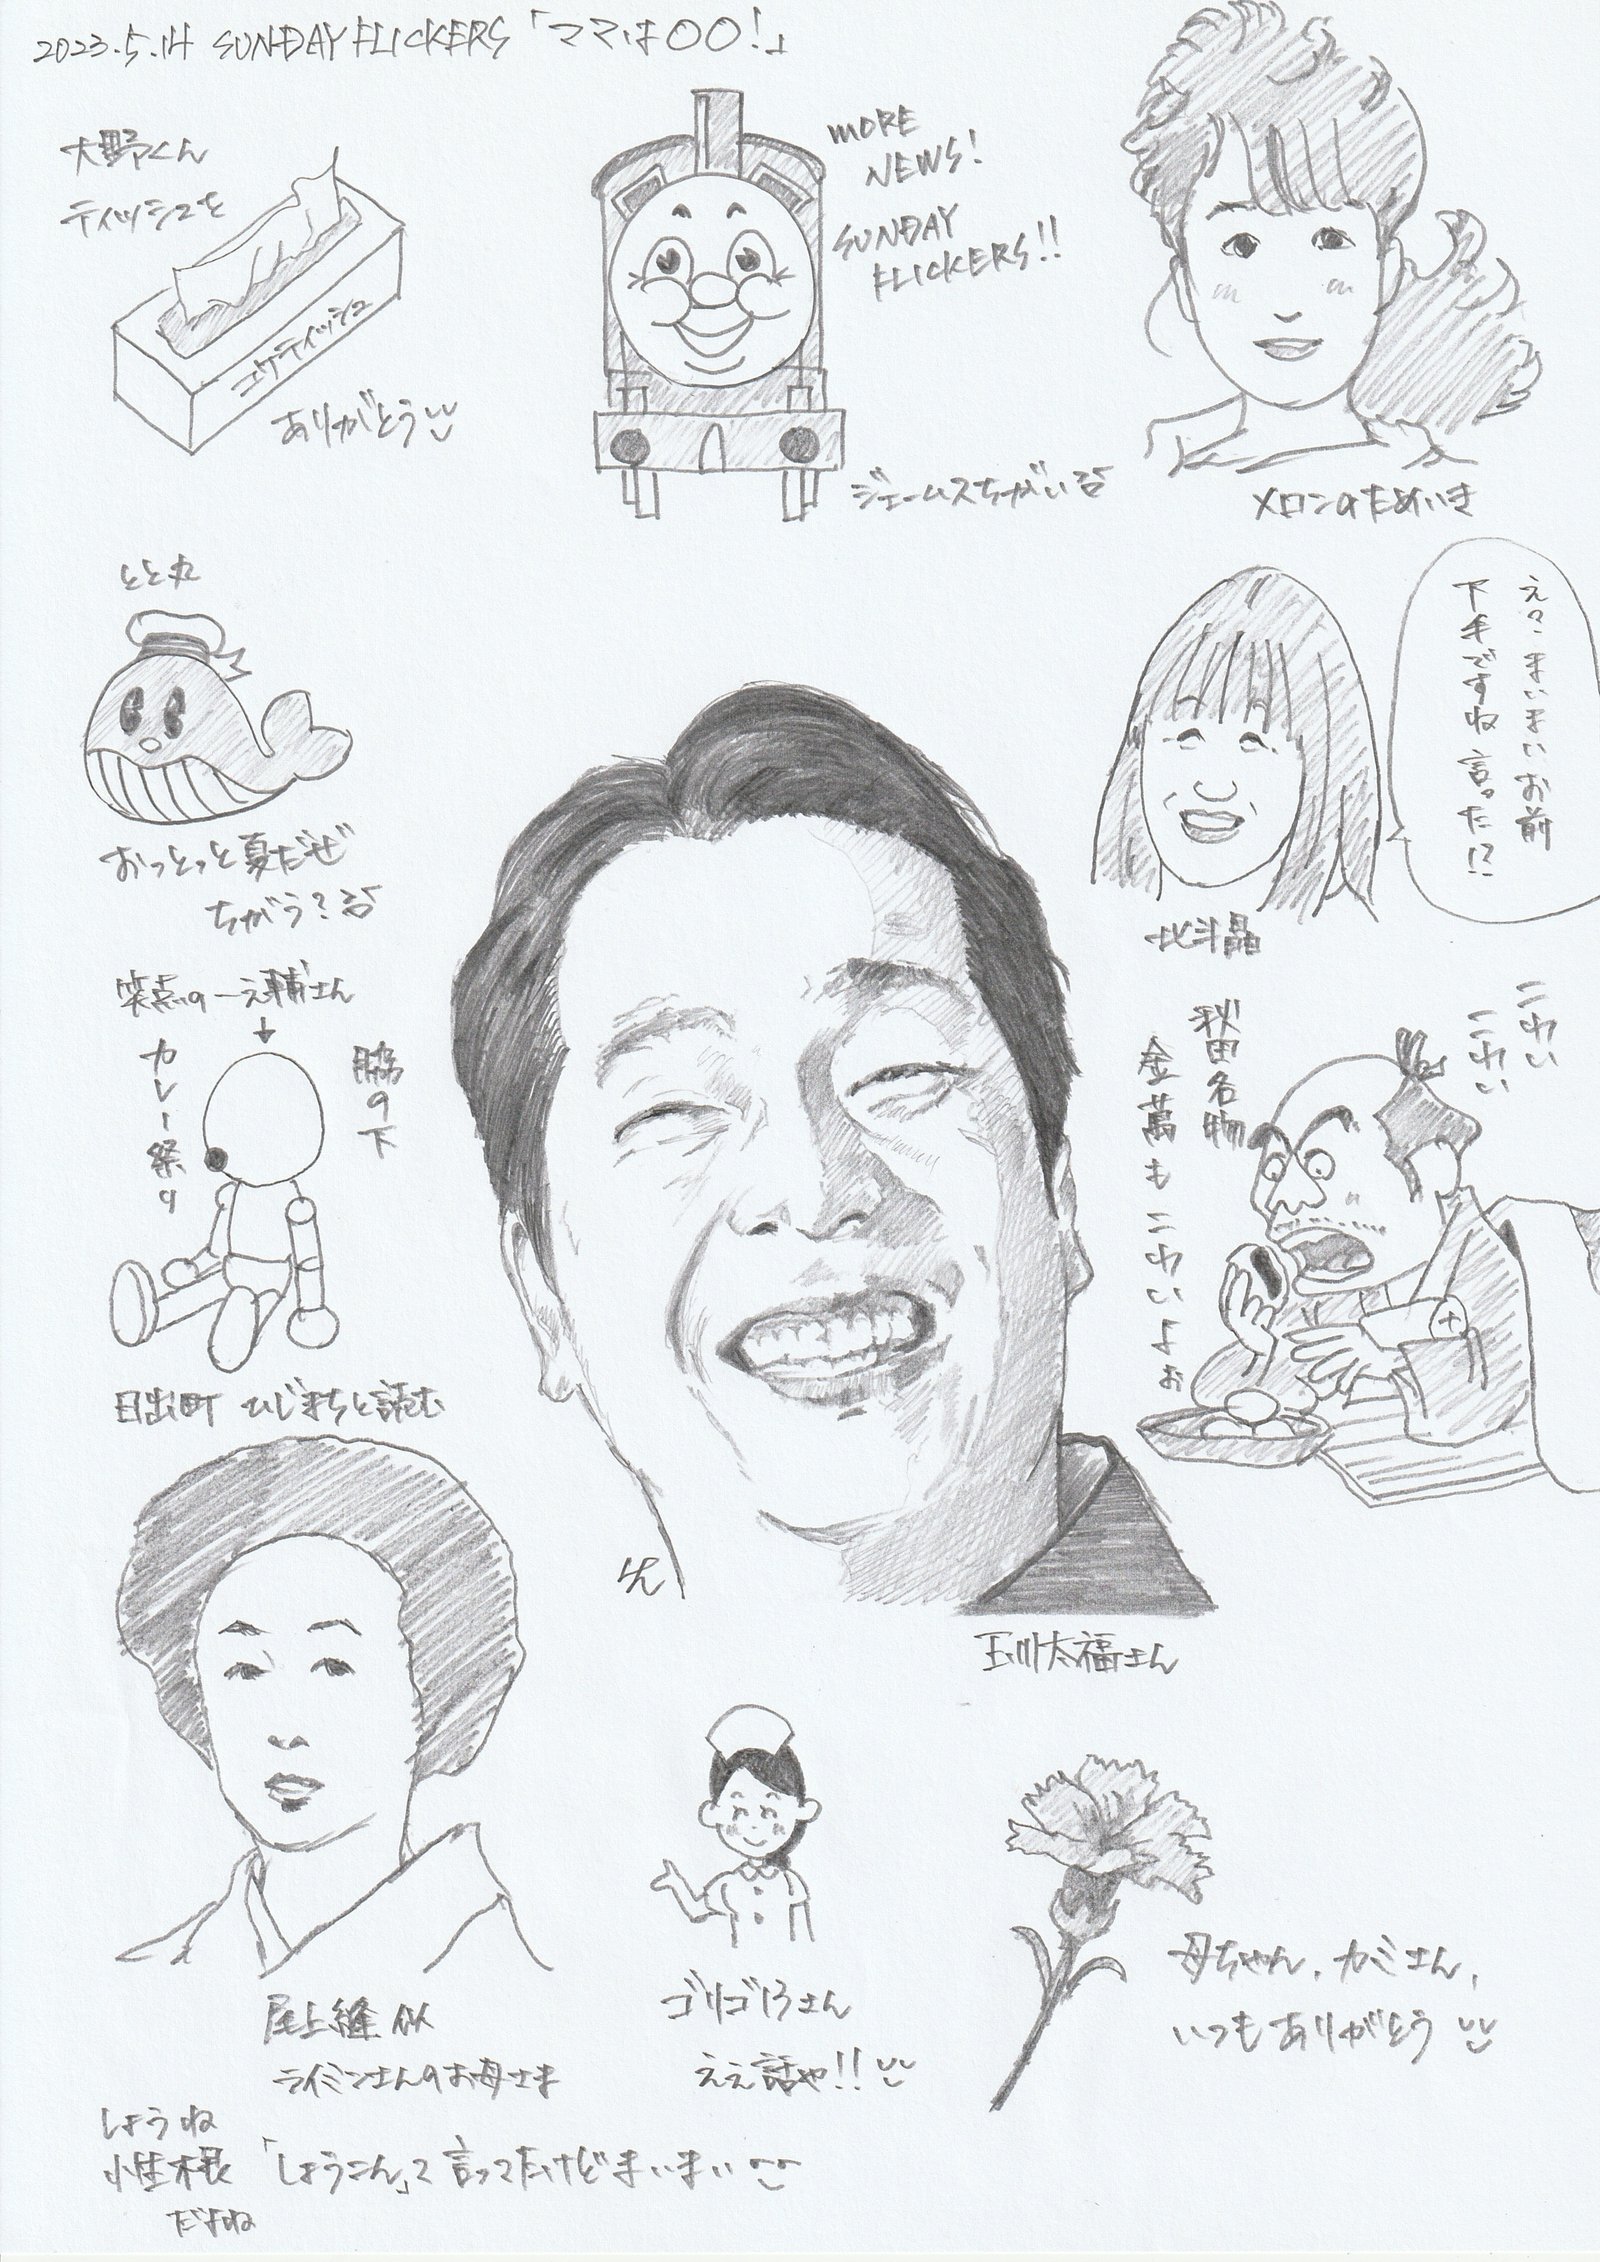 2023.5.14 SUNDAY FLICKERS「ママは〇〇!」
大野くん
ティッシュを
コケティッシュ
ありがとう
MORE
NEWS!
SUNDAY
FLICKERS!!
ジェームスちがい
メロンのためいき
とと丸
おっとっと夏だぜ
ちがう?
えぇーまいまいお前
下手ですね言った!?
北斗晶
笑点の一之輔さん
↓
カレー祭の
脇の下
日出町 ひじまちと読む
こわい
こわい
秋田名物
金萬もこわいよぉ
玉川太福さん
尾上縫 似
ライミンさんのお母さま
ゴリゴリ13さん
ええ話や!!
母ちゃん、カミさん、
いつもありがとう
しょうね
性根「しょうこん」て言ってたけどまいまい
だよね